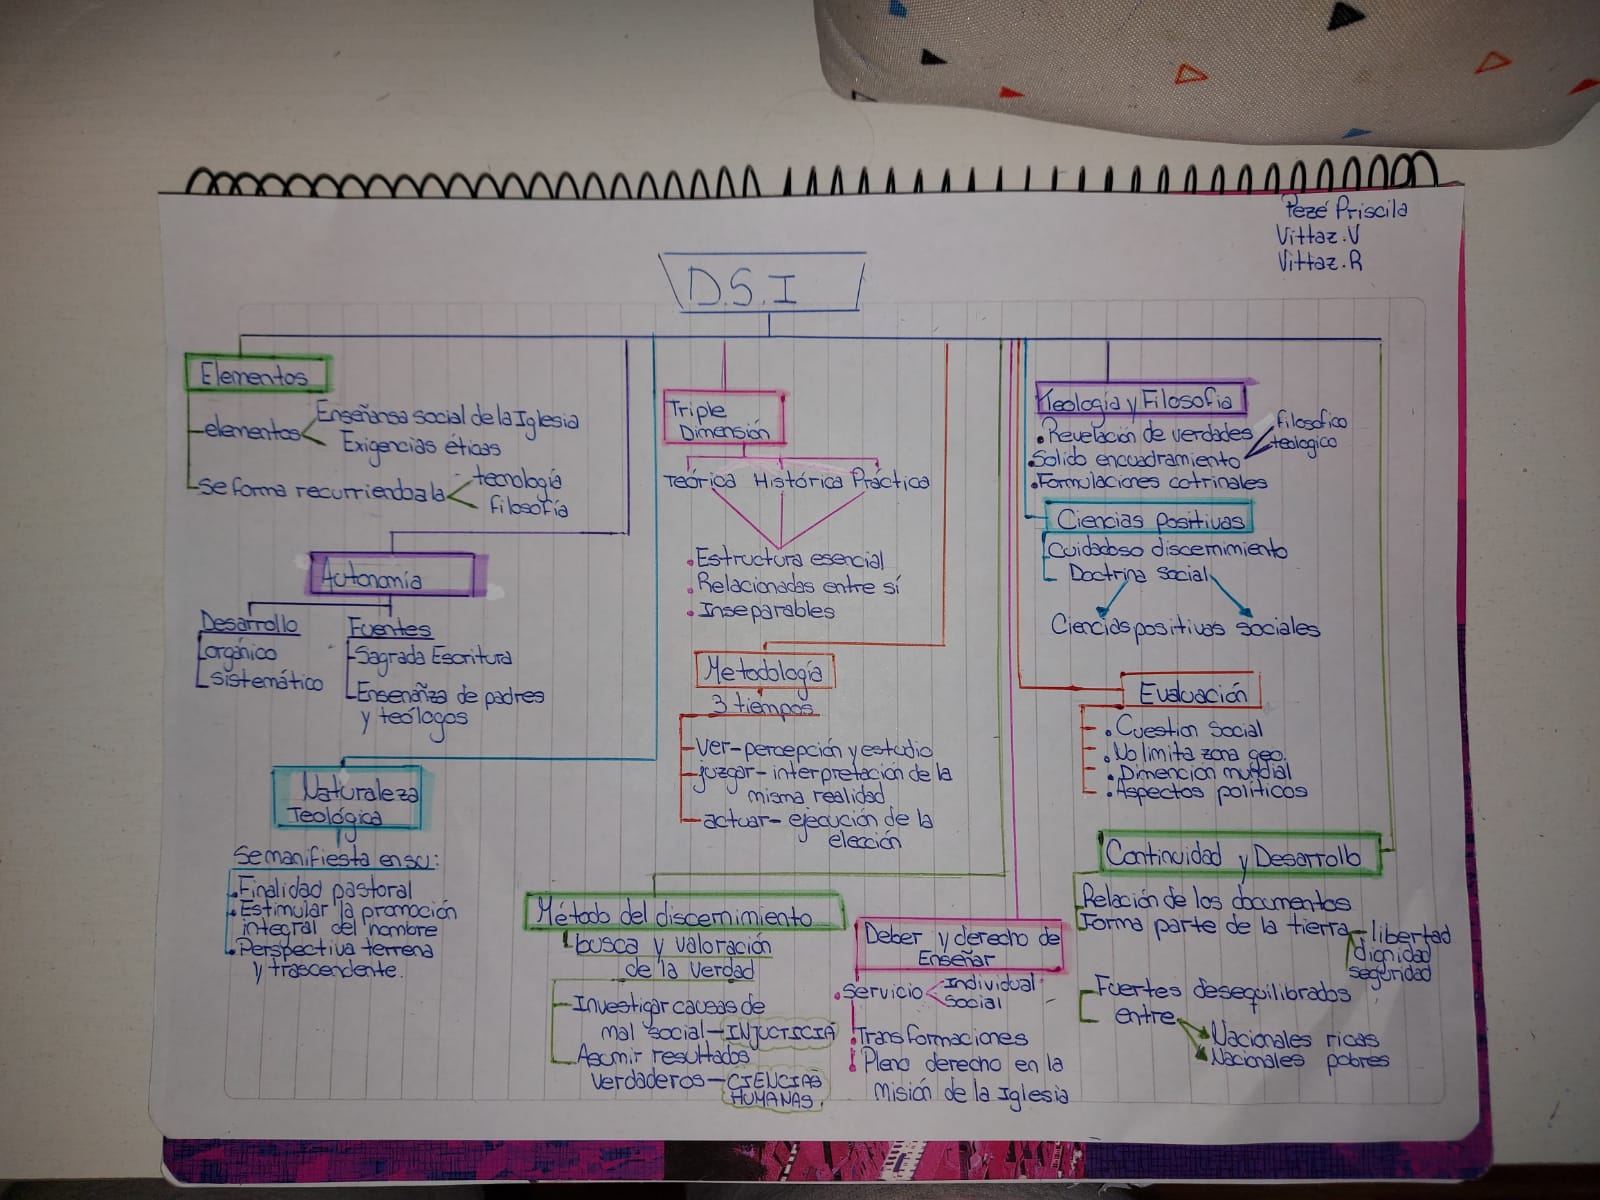 Pezé Priscila
Vittaz.V
Vittaz.R
D.S.I
Elementos
elementos
Enseñansa social de la Iglesia
Exigencias éticas
se forma recurriendo a la
tecnología
filosofía
Autonomía
Desarrollo
orgánico
sistemático
Fuentes
Sagrada Escritura
Enseñañza de padres
y teólogos
Naturaleza
Teológica
Se manifiesta en su:
Finalidad pastoral
Estimular la promoción
integral del hombre
Perspectiva terrena
y trascendente.
Triple
Dimensión
Teórica Histórica Práctica
Estructura esencial
Relacionadas entre sí
Inseparables
Metodología
3 tiempos
ver- percepción y estudio
juzgar- interpretación de la
misma realidad
actuar- ejecución de la
elección
Método del discernimiento
busca y valoración
de la verdad
Investigar causas de
mal social- INJUCTICIA
Asumir resultados
verdaderos- CIENCIAS
HUMANAS.
Deber y derecho de
Enseñar
servicio
Individual
social
Transformaciones
Pleno derecho en la
misión de la Iglesia
Teología y Filosofia
Revelación de verdades
Solido encuadramiento
filosofico
teologico
Formulaciones cotrinales
Ciencias positivas
Cuidadoso discernimiento
Doctrina social
Ciencias positivas sociales
Evaluación
Cuestion Social
No limita zona geo.
Dimencion mundial
Aspectos políticos
Continuidad y Desarrollo
Relación de los documentos
Forma parte de la tierra
libertad
dignidad
seguridad
Fuertes desequilibrados
entre
Nacionales ricas
Nacionales pobres